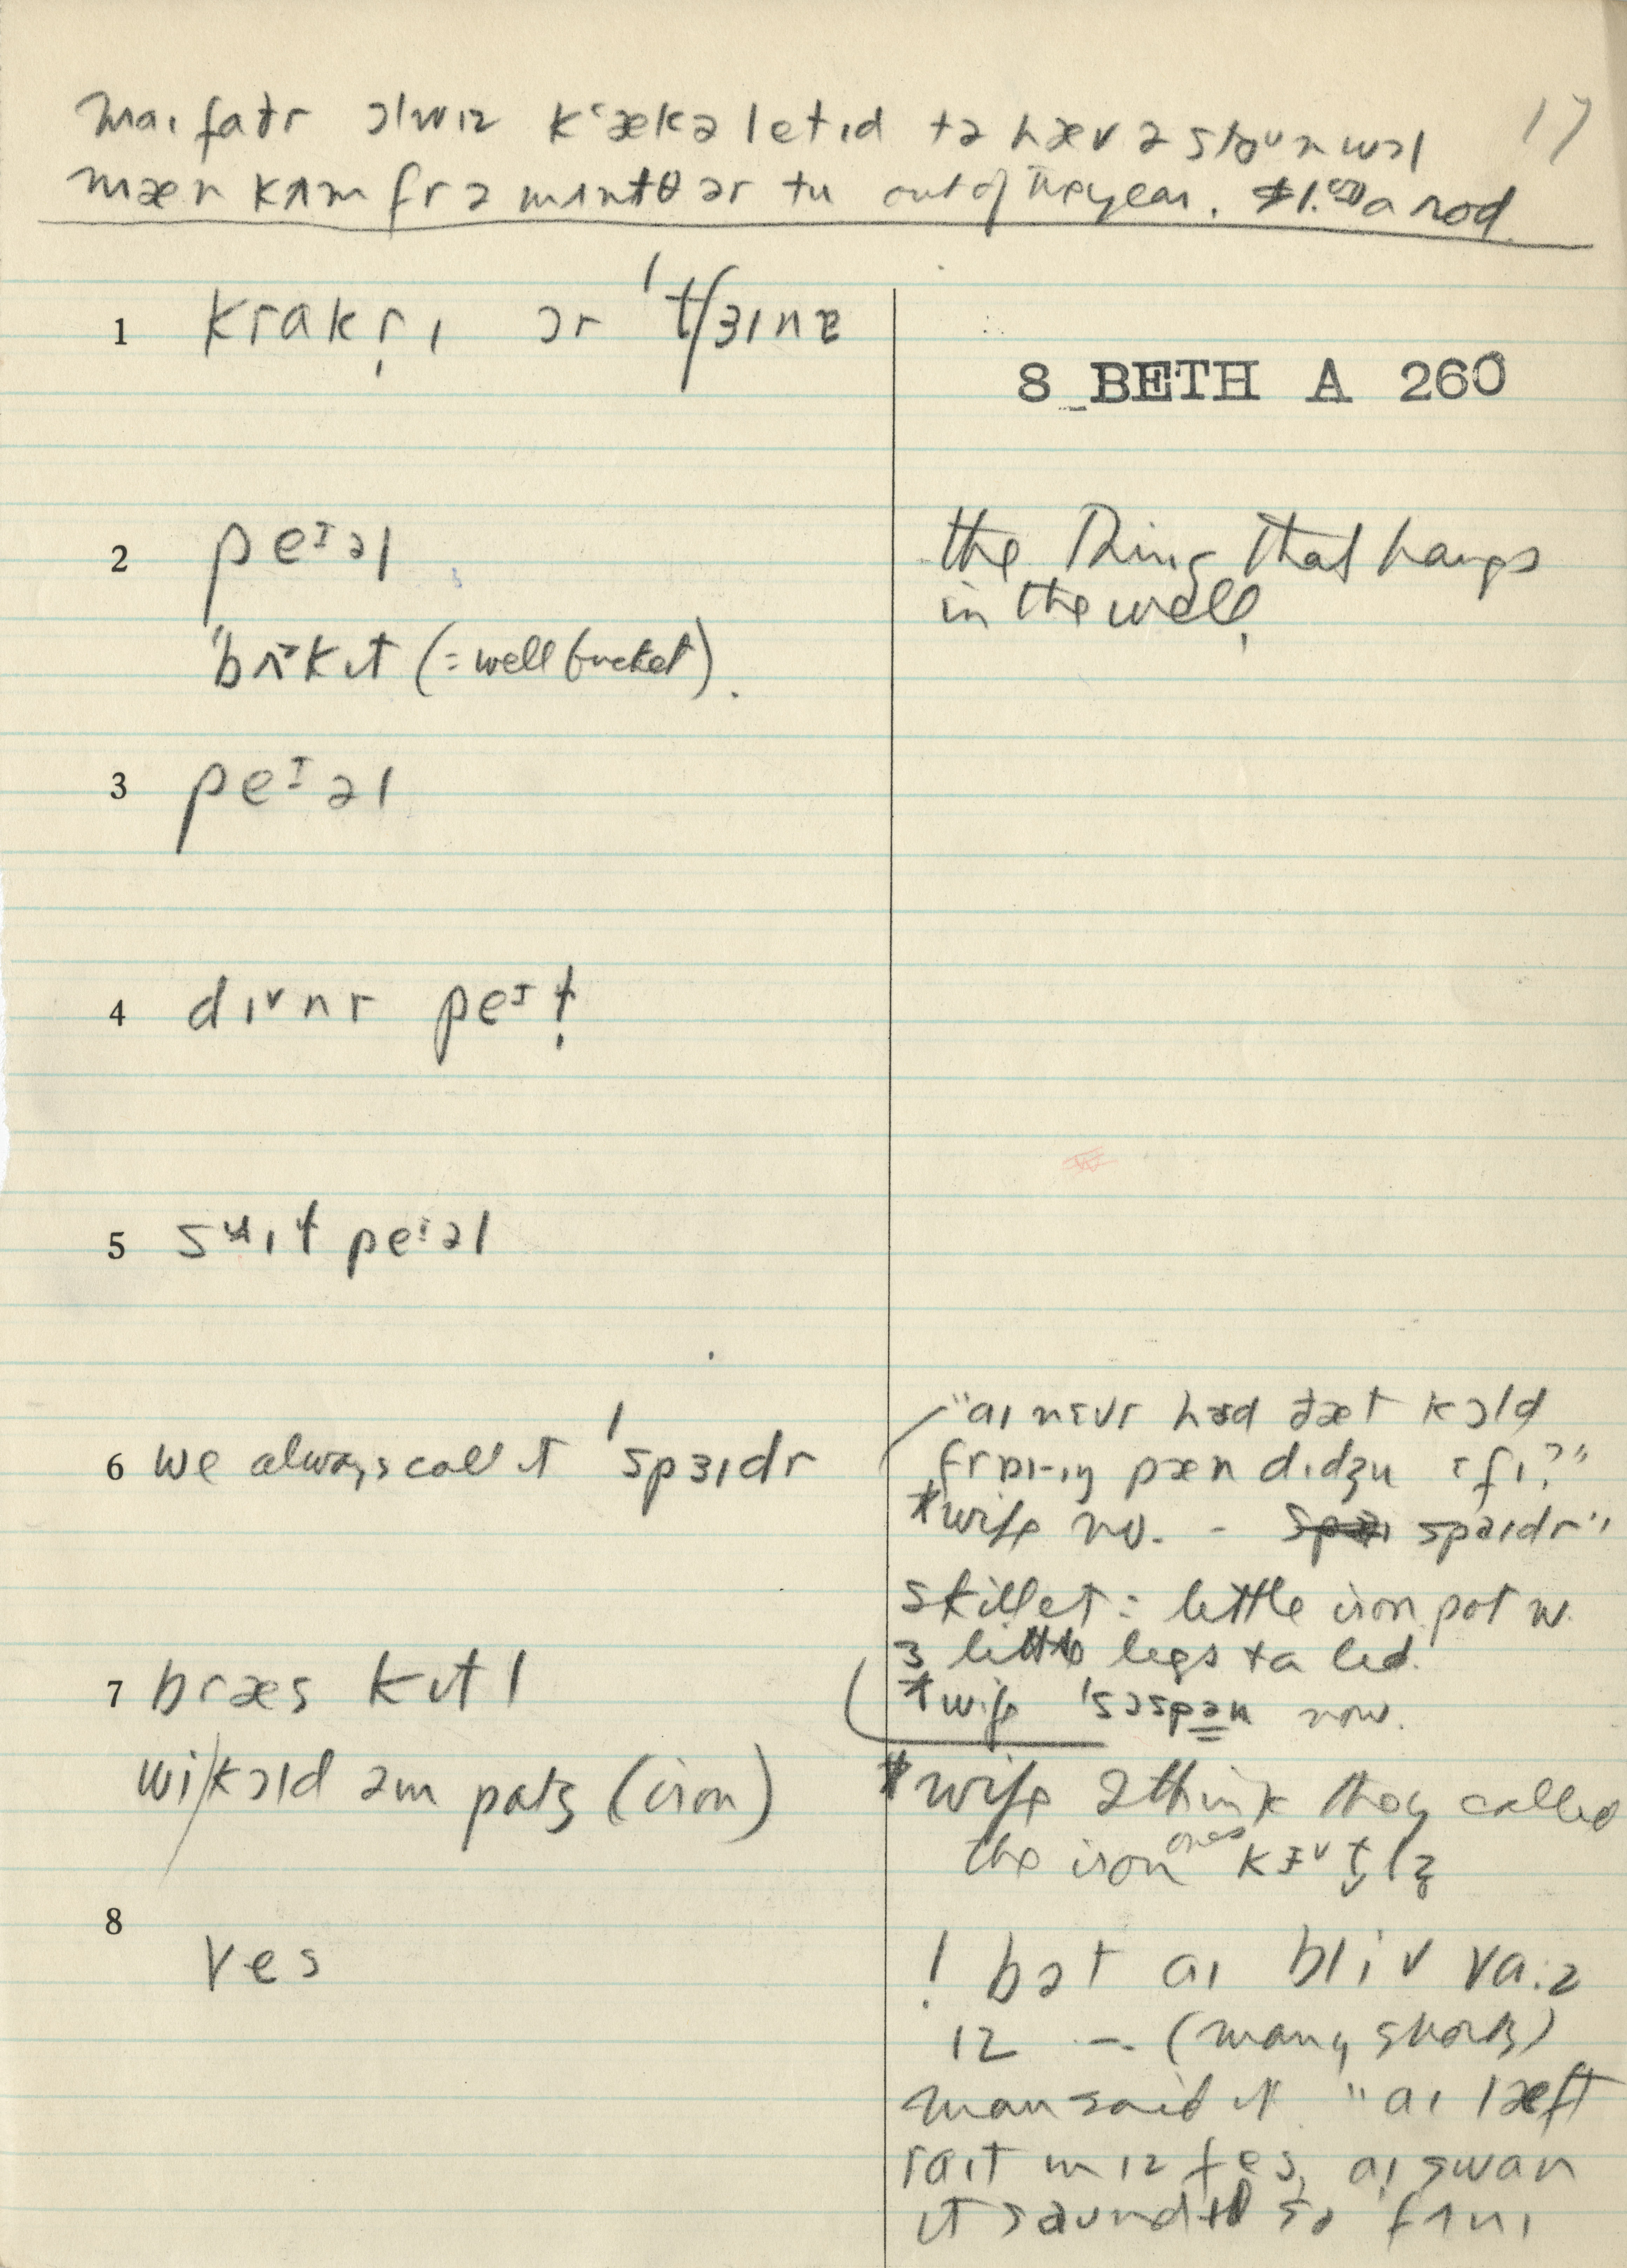 maɪ faðr ɔlwɪz kʽækəletɪd tə hæv ə stoᵘn wɔl 17
mæn kʌm fr ə mʌntθ ər tu out of the year. $1.00 a rod.
1 krakr̩ɪ ər ˈtʃɜɪnɐ
8 BETH A 260
2 peᶦəl
the thing that hangs
in the well.
"bʌ˃kɪt (= well bucket).
3 peᶦəl
4 dɪ˅nr peᶦt̬
5 sʉɪt peᶦəl
6 we always call it ˈspɜɪdr
"aɪ nɛvr hɜd ðæt kɔld
fraɪ-ɪŋ pæn dɪdʒu ɛfɪ?"
*wife no. - spaɪdr"
skillet = little iron pot w.
3 little legs + a lid.
*wife ˈsɔspən now.
7 bræs kɪtl
wi kɔld əm pats (iron)
*wife I think they called
the iron ones kɪ˅t̬lz
8 ves
! bət aɪ bliv va:z
ɪz - (many snorts)
man said it "aɪ læft
raɪt ɪn ɪz fes, aɪ swan
ɪt saundɪd so fʌnɪ